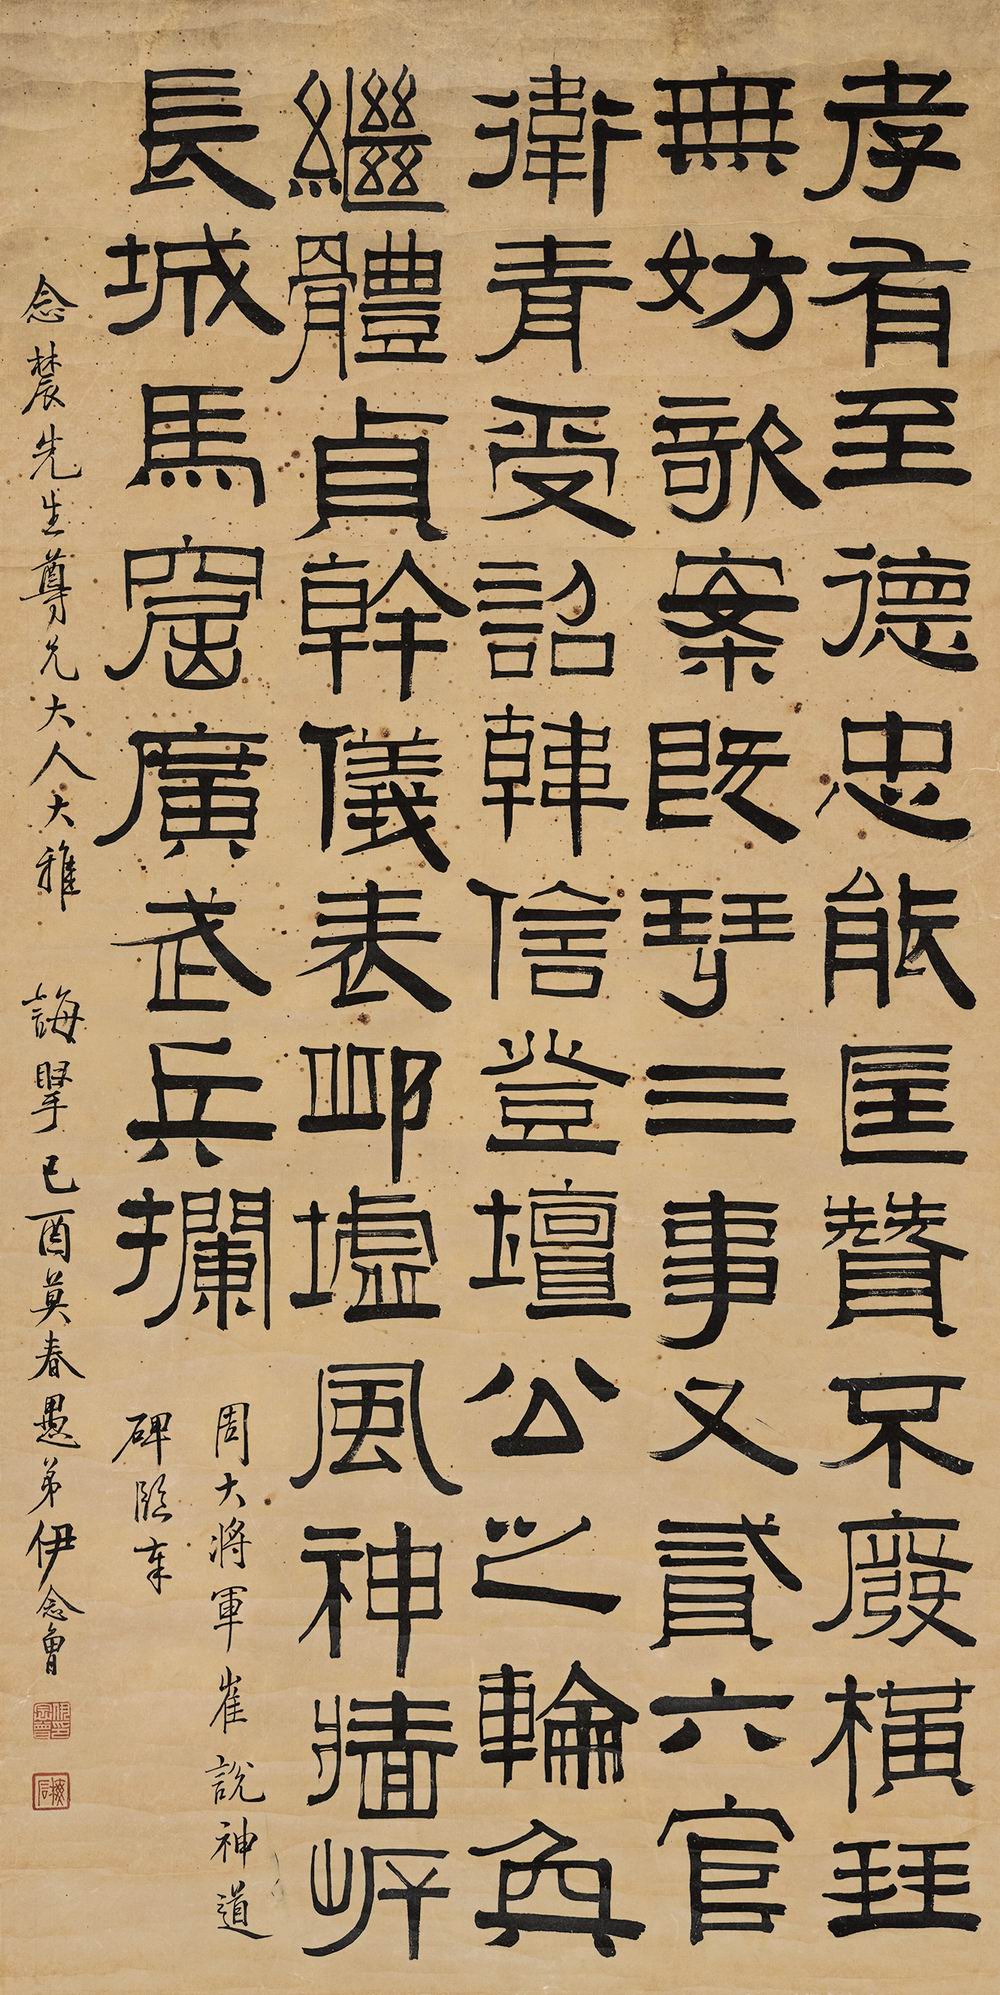 孝有至德忠能匡贊不廢橫琴
無妨歌案既三事又貳六官
衛青受詔韓信登壇公之輪奐
繼體貞幹儀表邱墟風神牆岸
長城馬窟廣武兵攔
周大將軍崔說神道
碑臨奉
念辳先生尊兄大人大雅 誨掔 己酉莫春愚弟伊念曾